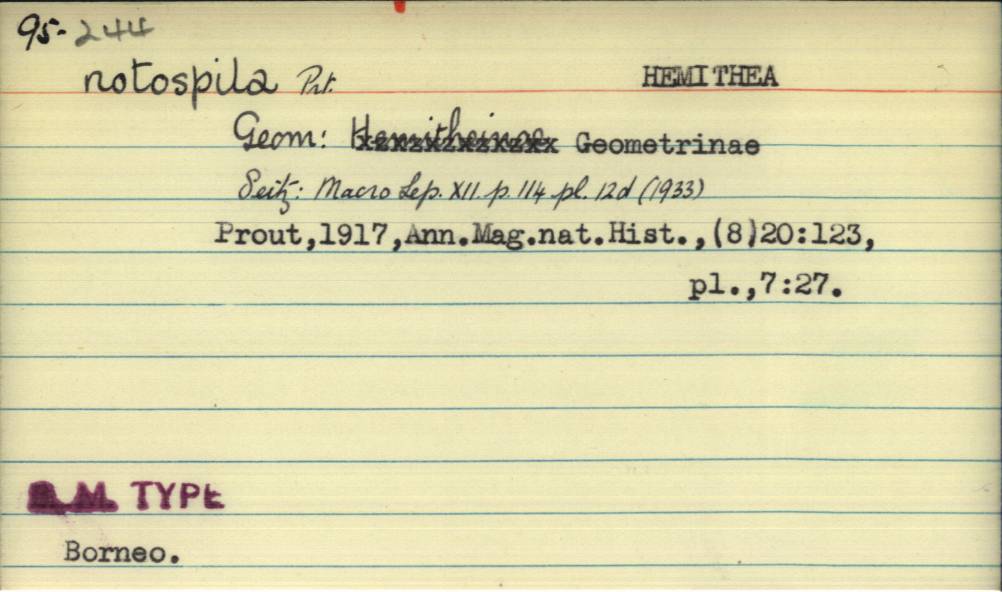 95-244
notospila Prt. HEMITHEA
Geom: Hemitheinae Geometrinae
Seitz: Macro Lep. XII. p. 114 pl. 12d (1933)
Prout,1917,Ann.Mag.nat.Hist.,(8)20:123,
pl.,7:27.
B.M. TYPE
Borneo.